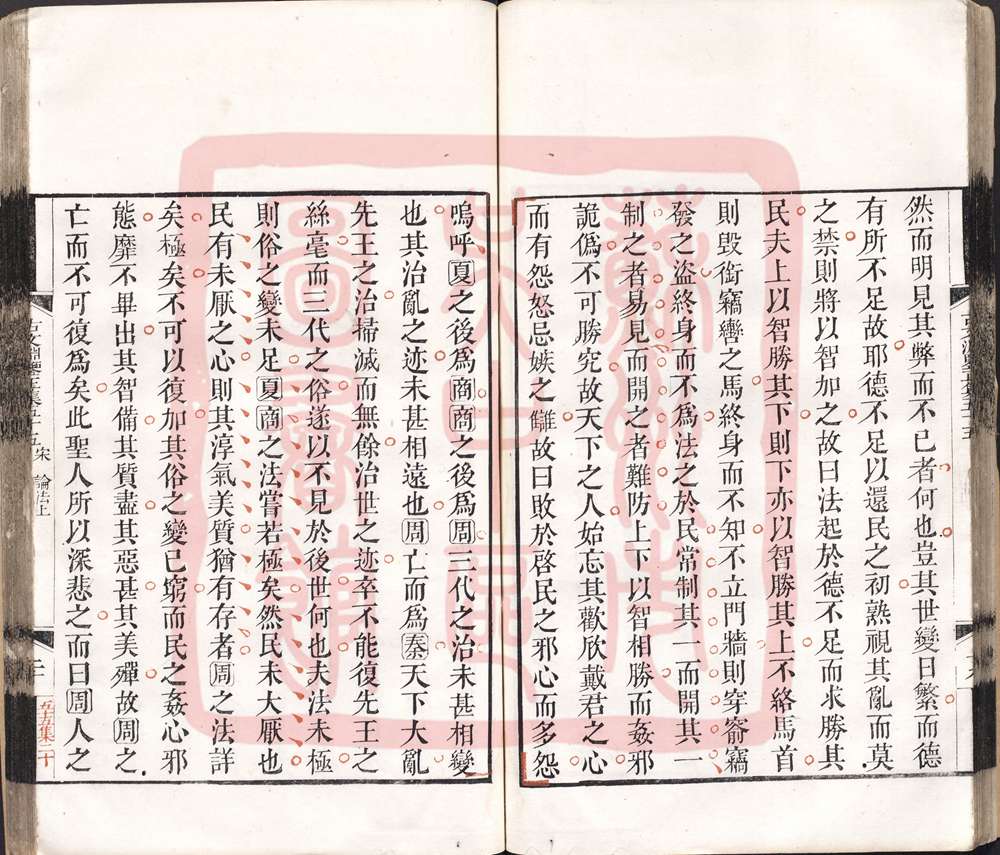 然而明見其弊而不已者何也豈其世變日繁而德
有所不足故耶德不足以還民之初熟視其亂而莫
之禁則將以智加之故曰法起於德不足而求勝其
民夫上以智勝其下則下亦以智勝其上不絡馬首
則毀銜竊轡之馬終身而不知不立門牆則穿窬竊
發之盜終身而不爲法之於民常制其一而開其一
制之者易見而開之者難防上下以智相勝而姦邪
詭僞不可勝究故天下之人始忘其歡欣戴君之心
而有怨怒忌嫉之讎故曰敗於啓民之邪心而多怨
嗚呼夏之後爲商商之後爲周三代之治未甚相變
也其治亂之迹未甚相遠也周亡而爲秦天下大亂
先王之治掃滅而無餘治世之迹卒不能復先王之
絲毫而三代之俗遂以不見於後世何也夫法未極
則俗之變未足夏商之法嘗若極矣然民未大厭也
民有未厭之心則其淳氣美質猶有存者周之法詳
矣極矣不可以復加其俗之變已窮而民之姦心邪
態靡不畢出其智備其質盡其惡甚其美殫故周之
亡而不可復爲矣此聖人所以深悲之而曰周人之
宋 論法上
五十五集二十
蘇州大學圖書館